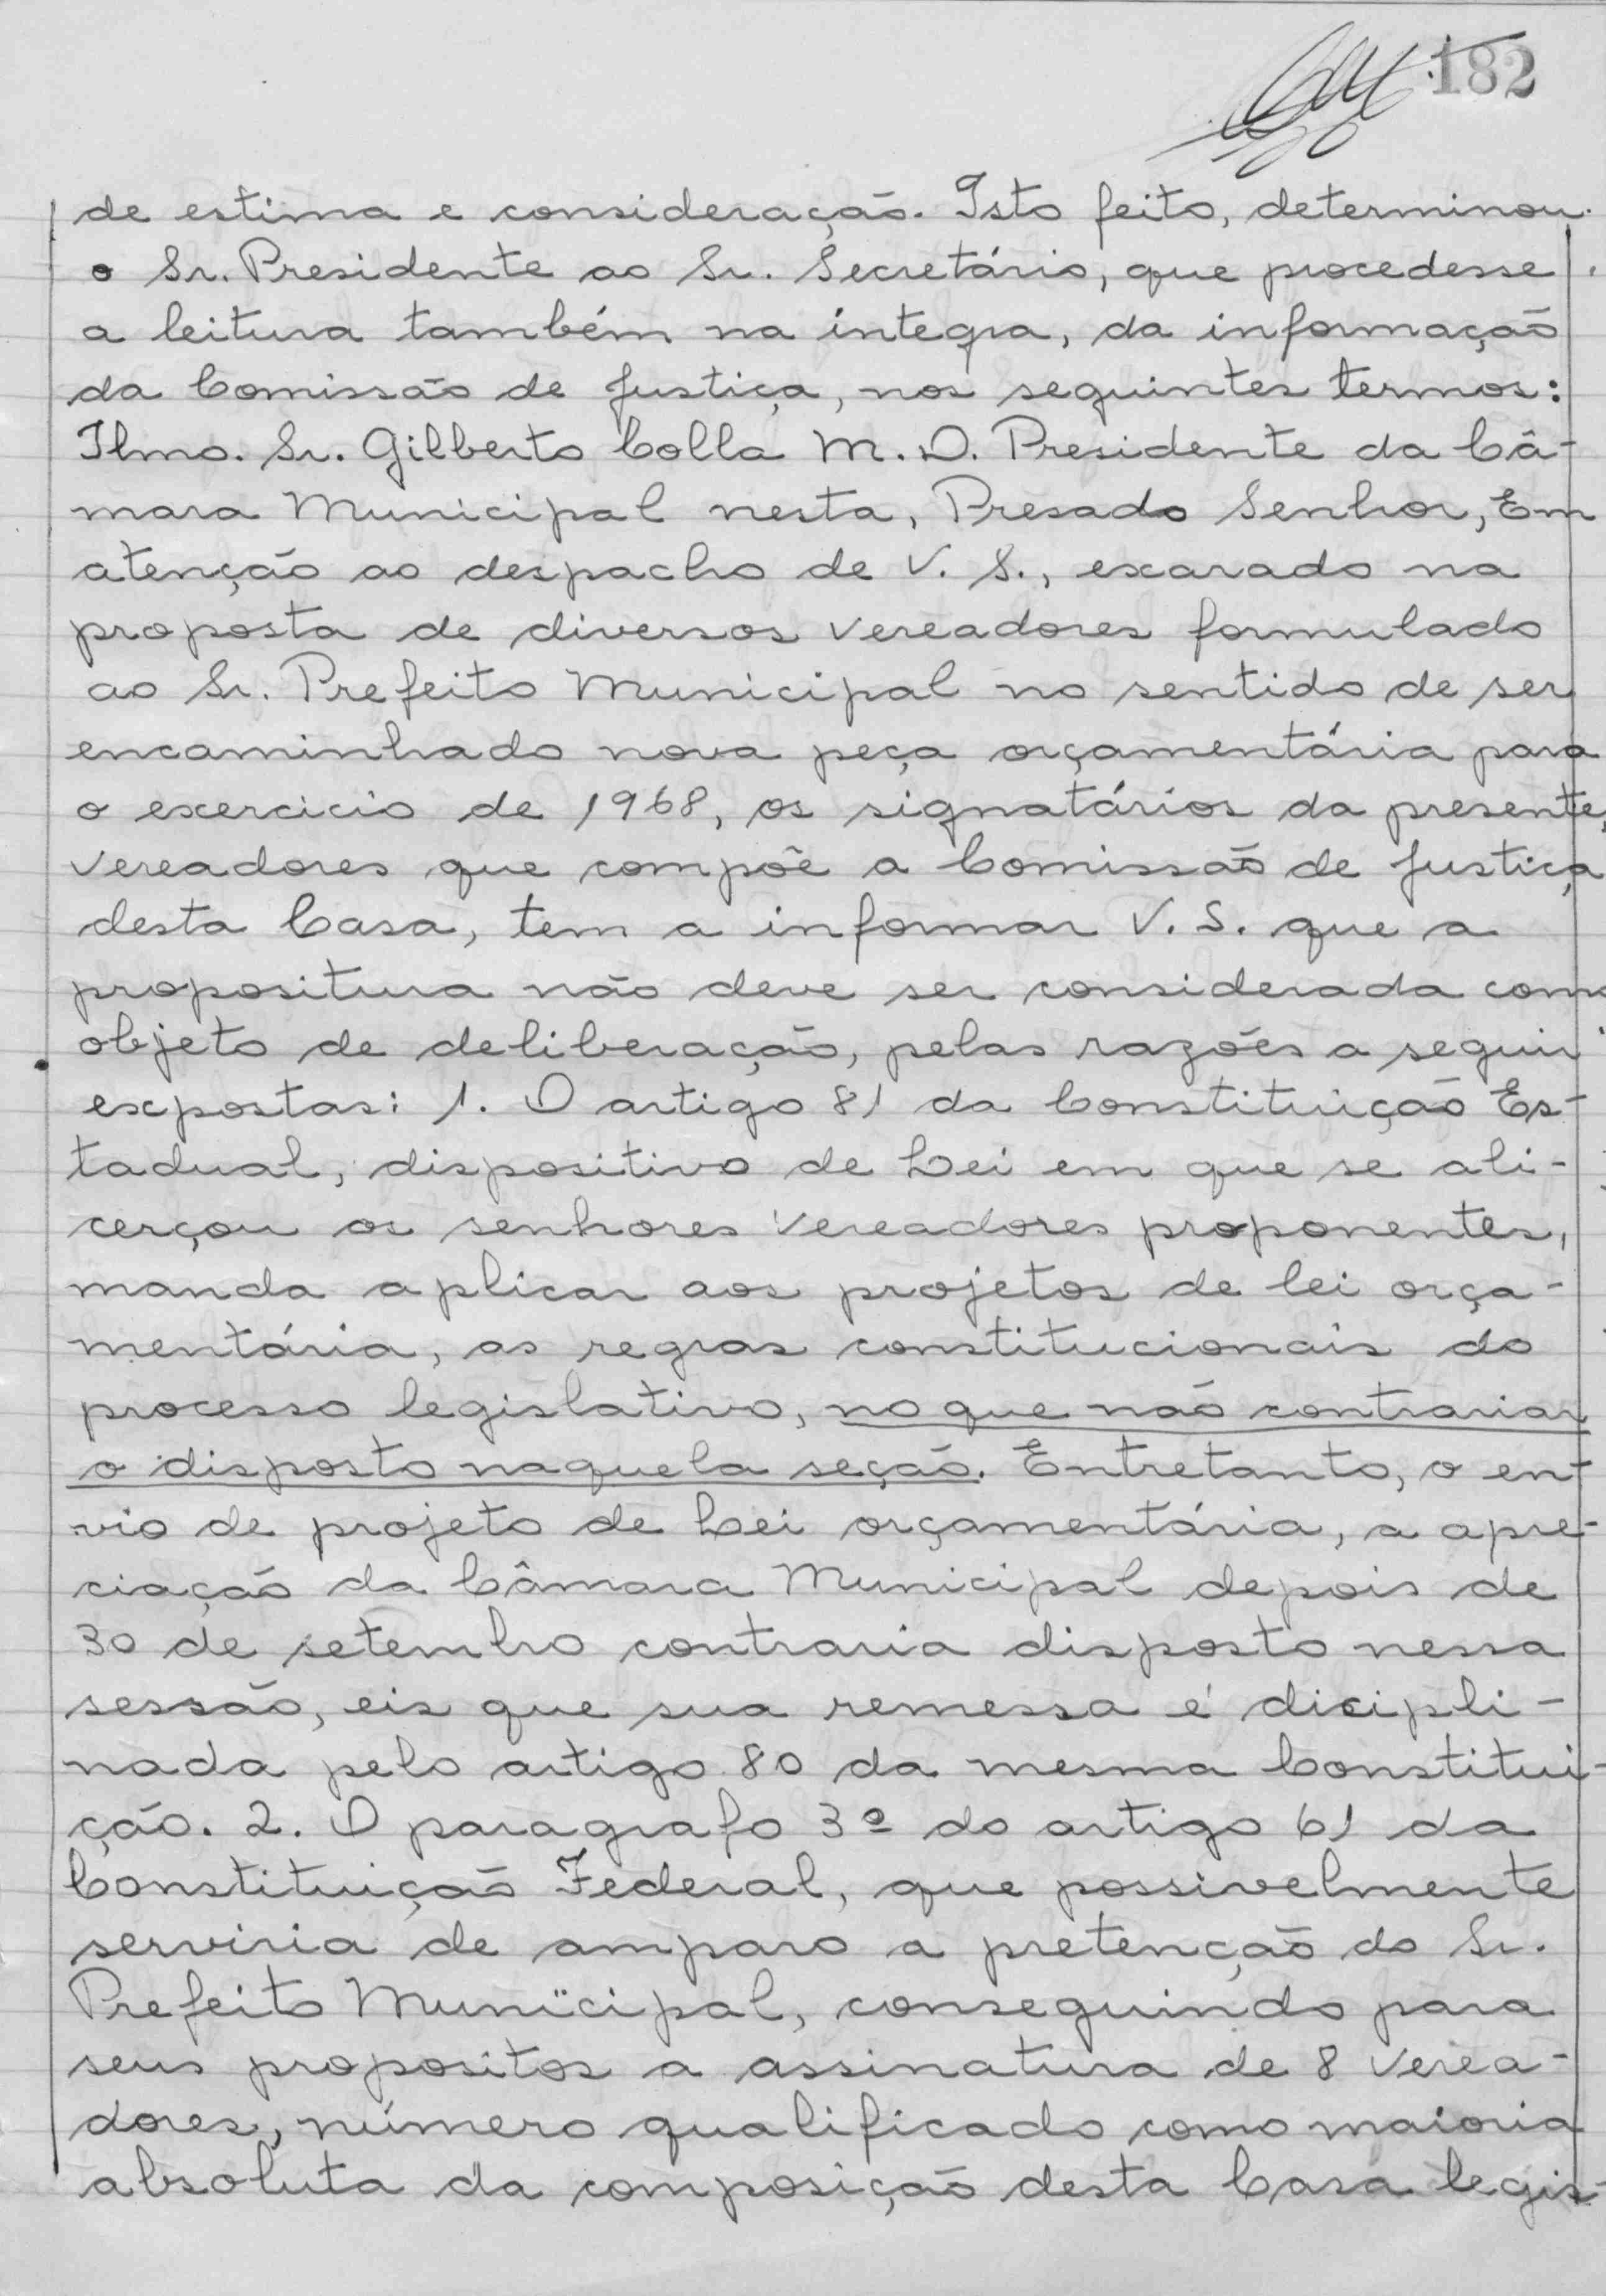 182
de estima e consideração. Isto feito, determinou
o Sr. Presidente ao Sr. Secretário, que procedesse
a leitura também na íntegra, da informação
da Comissão de Justiça, nos seguintes termos:
Ilmo. Sr. Gilberto Colla M. D. Presidente da Câ-
mara Municipal nesta, Presado Senhor, Em
atenção ao despacho de V. S., exarado na
proposta de diversos vereadores formulado
ao Sr. Prefeito Municipal no sentido de ser
encaminhado nova peça orçamentária para
o exercicio de 1968, os signatários da presente,
vereadores que compõe a Comissão de Justiça
desta Casa, tem a informar V. S. que a
propositura não deve ser considerada como
objeto de deliberação, pelas razões a seguir
expostas: 1. O artigo 81 da Constituição Es-
tadual, dispositivo de Lei em que se ali-
cerçou os senhores Vereadores proponentes,
manda aplicar aos projetos de lei orça-
mentária, as regras constitucionais do
processo legislativo, no que não contrariar
o disposto naquela seção. Entretanto, o en-
vio de projeto de Lei orçamentária, a apre-
ciação da Câmara Municipal depois de
30 de setembro contraria disposto nessa
sessão, eis que sua remessa é dicipli-
nada pelo artigo 80 da mesma Constitui-
ção. 2. O paragrafo 3º do artigo 61 da
Constituição Federal, que possivelmente
serviria de amparo a pretenção do Sr.
Prefeito Municipal, conseguindo para
seus propositos a assinatura de 8 Verea-
dores, número qualificado como maioria
absoluta da composição desta Casa legis-